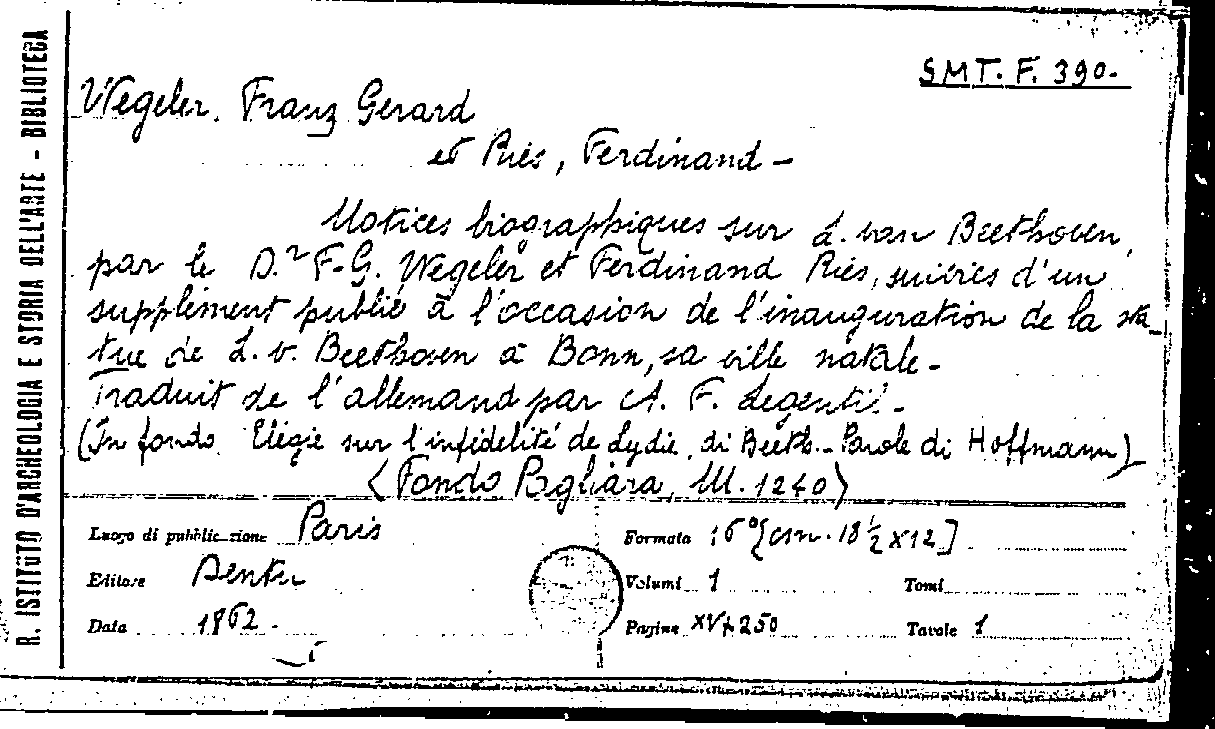 R. ISTITUTO D'ARCHEOLOGIA E STORIA DELL'ARTE - BIBLIOTECA
SMT. F. 390.
Wegeler, Franz Gerard
et Riés, Ferdinand -
Notices biographiques sur L. van Beethoven,
par le D.r F-G. Wegeler et Ferdinand Riés, suivies d'un
supplément publié à l'occasion de l'inauguration de la sta-
tue de L. v. Beethoven à Bonn, sa ville natale -
Traduit de l'allemand par A. F. Legentil -
(In fondo Elégie sur l'infidélité de Lydie, di Beeth. - Parole di Hoffmann)
(Fondo Pagliara, M. 1240)
Luogo di pubblicazione Paris
Formato 16° [cm. 18 1/2 x 12]
Editore Dentu
Volumi 1 Tomi
Data 1862.
Pagine XV+250 Tavole 1